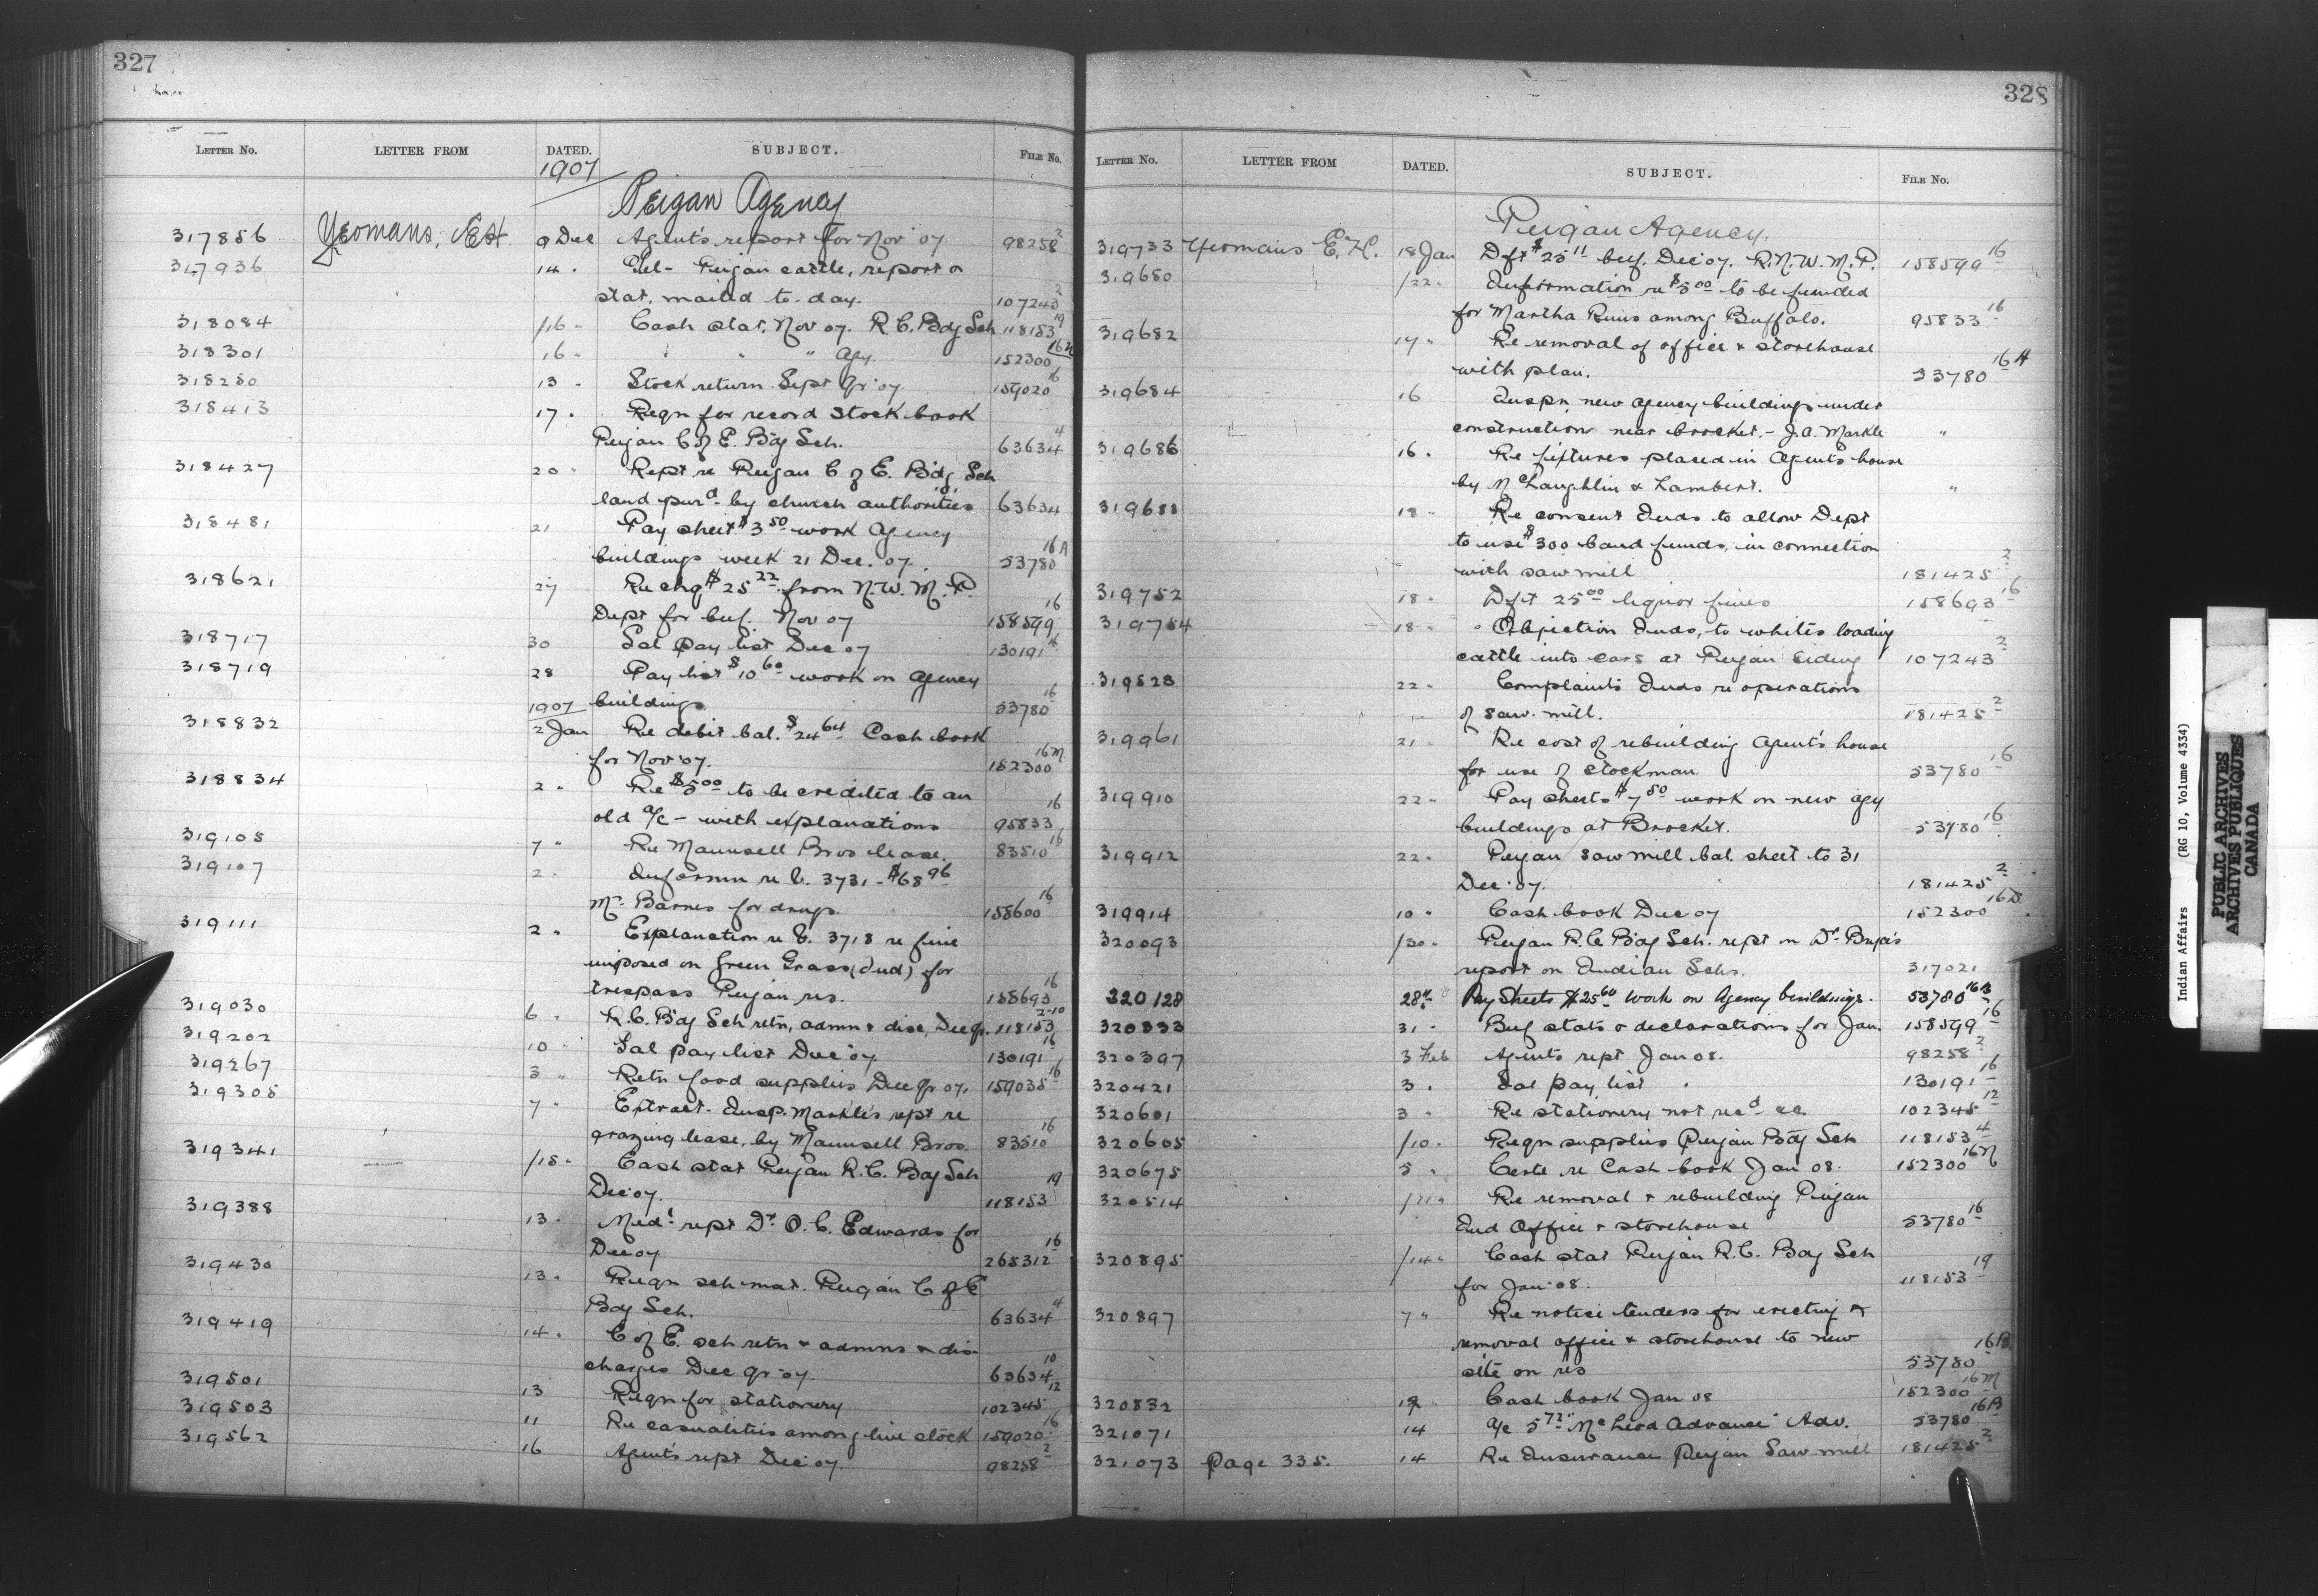 327
LETTER NO. LETTER FROM DATED. SUBJECT. FILE NO.
1907
Peigan Agency
317856 Yeomans, E.H. 9 Dec Agent's report for Nov '07 98258 2
317936 14 " Tel- Peigan cattle, report &
stat. mailed to-day. 107243 2
318084 /16 " Cash stat. Nov 07. R.C. Bdg Sch 118153 19
318301 16 " " " " Agy. 152300 16
318250 13 " Stock return Sept Qr '07. 159020 16
318413 17 " Reqn for record Stock book
Peigan C of E. Bdg Sch. 63634 4
318427 20 " Rept re Peigan C of E. Bdg Sch
land purd by church authorities 63634
318481 21 Pay sheet $3 50 work Agency
buildings week 21 Dec. '07. 53780 16A
318621 27 Re chq $25 22 from N.W.M.P.
Dept for beef. Nov 07 158599 16
318717 30 Sal pay list Dec 07 130191 16
318719 28 Pay list $10 60 work on Agency
1907 buildings 53780 16
318832 2 Jan Re debit bal. $24 64 Cash book
for Nov '07. 152300 16M
318834 2 " Re $5 00 to be credited to an
old a/c - with explanations 95833 16
319105 7 " Re Maunsell Bros lease. 83510 16
319107 2 " Informn re C. 3731 - $68 96
Mr. Barnes for drugs. 158600 16
319111 2 " Explanation re C. 3718 re fine
imposed on Green Grass (Ind) for
trespass Peigan res. 158693 16
319030 6 " R.C. Bdg Sch retn, admn & disc, Dec qr. 118153 2-10
319202 10 " Sal pay list Dec '07 130191 16
319267 3 " Retn food supplies Dec qr 07. 159035 16
319305 7 " Extract Insp. Markle's rept re
grazing lease, by Maunsell Bros. 83510 16
319341 /15 " Cash stat Peigan R.C. Bdg Sch
Dec '07. 118153 19
319388 13 " Medl rept Dr O.C. Edwards for
Dec 07 265312 16
319430 13 " Reqn sch mat. Peigan C of E
Bdg Sch. 63634 4
319419 14 " C of E. sch retn & admns & dis-
charges Dec qr '07. 63634 10
319501 13 Reqn for stationery 102345 12
319503 11 Re casualities among live stock 159020 16
319562 16 Agent's rept Dec '07. 98258 2
328
LETTER NO. LETTER FROM DATED. SUBJECT. FILE NO.
Peigan Agency.
319733 Yeomans E.H. 18 Jan Dft $25 11 beef. Dec '07. R.N.W.M.P. 158599 16
319680 /22 " Information re $5 00 to be funded
for Martha Runs among Buffalo. 95833 16
319682 17 " Re removal of office & storehouse
with plan. 53780 16A
319684 16 Inspn new agency buildings under
construction near Brocket. - J.A. Markle "
319686 16 " Re fixtures placed in Agent's house
by McLaughlin & Lambert. "
319688 18 " Re consent Inds to allow Dept
to use $300 band funds, in connection
with saw mill 181425 2
319752 18 " Dft 25 00 liquor fines 158693 16
319754 18 " " Objection Inds, to whites loading
cattle into cars at Peigan Siding 107243 2
319828 22 " Complaints Inds re operations
of saw-mill. 181425 2
319961 21 " Re cost of rebuilding Agent's house
for use of stockman 53780 16
319910 22 " Pay sheets $7 50 work on new agy
buildings at Brocket. 53780 16
319912 22 " Peigan saw mill bal. sheet to 31
Dec '07. 181425 2
319914 10 " Cash book Dec 07 152300 16
320093 /30 " Peigan R.C. Bdg Sch. rept on Dr Bryce's
report on Indian Schs. 317021
320128 28 " Pay Sheets $25 60 work on Agency buildings. 53780 16B
320333 31 " Beef stats & declarations for Jan. 158599 16
320397 3 Feb Agents rept Jan 08. 98258 2
320421 3 " Sal pay list " 130191 16
320601 3 " Re stationery not recd 102345 12
320605 /10 " Reqn supplies Peigan Bdg Sch 118153 4
320675 5 " Certe re Cash book Jan 08. 152300 16N
320514 /11 " Re removal & rebuilding Peigan
Ind Office & storehouse 53780 16
320895 /14 " Cash stat Peigan R.C. Bdg Sch
for Jan '08. 118153 19
320897 7 " Re notice tenders for erecting &
removal office & storehouse to new
site on res 53780 16B
320832 12 " Cash book Jan 08 152300 16M
321071 14 a/c 5 72 "McLeod Advance" Adv. 53780 16B
321073 Page 335. 14 Re Insurance Peigan Saw mill 181425 2
Indian Affairs (RG 10, Volume 4334)
PUBLIC ARCHIVES
ARCHIVES PUBLIQUES
CANADA